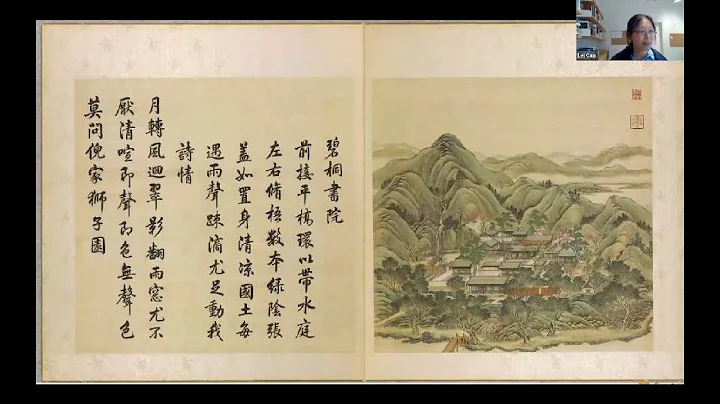 碧桐書院
前接平橋環以帶水庭
左右脩梧數本綠陰張
蓋如置身清涼國土每
遇雨聲踈滴尤足動我
詩情
月轉風迴翠影翻雨窓尤不
厭清喧即聲即色無聲色
莫問倪家獅子園
Lei Cao